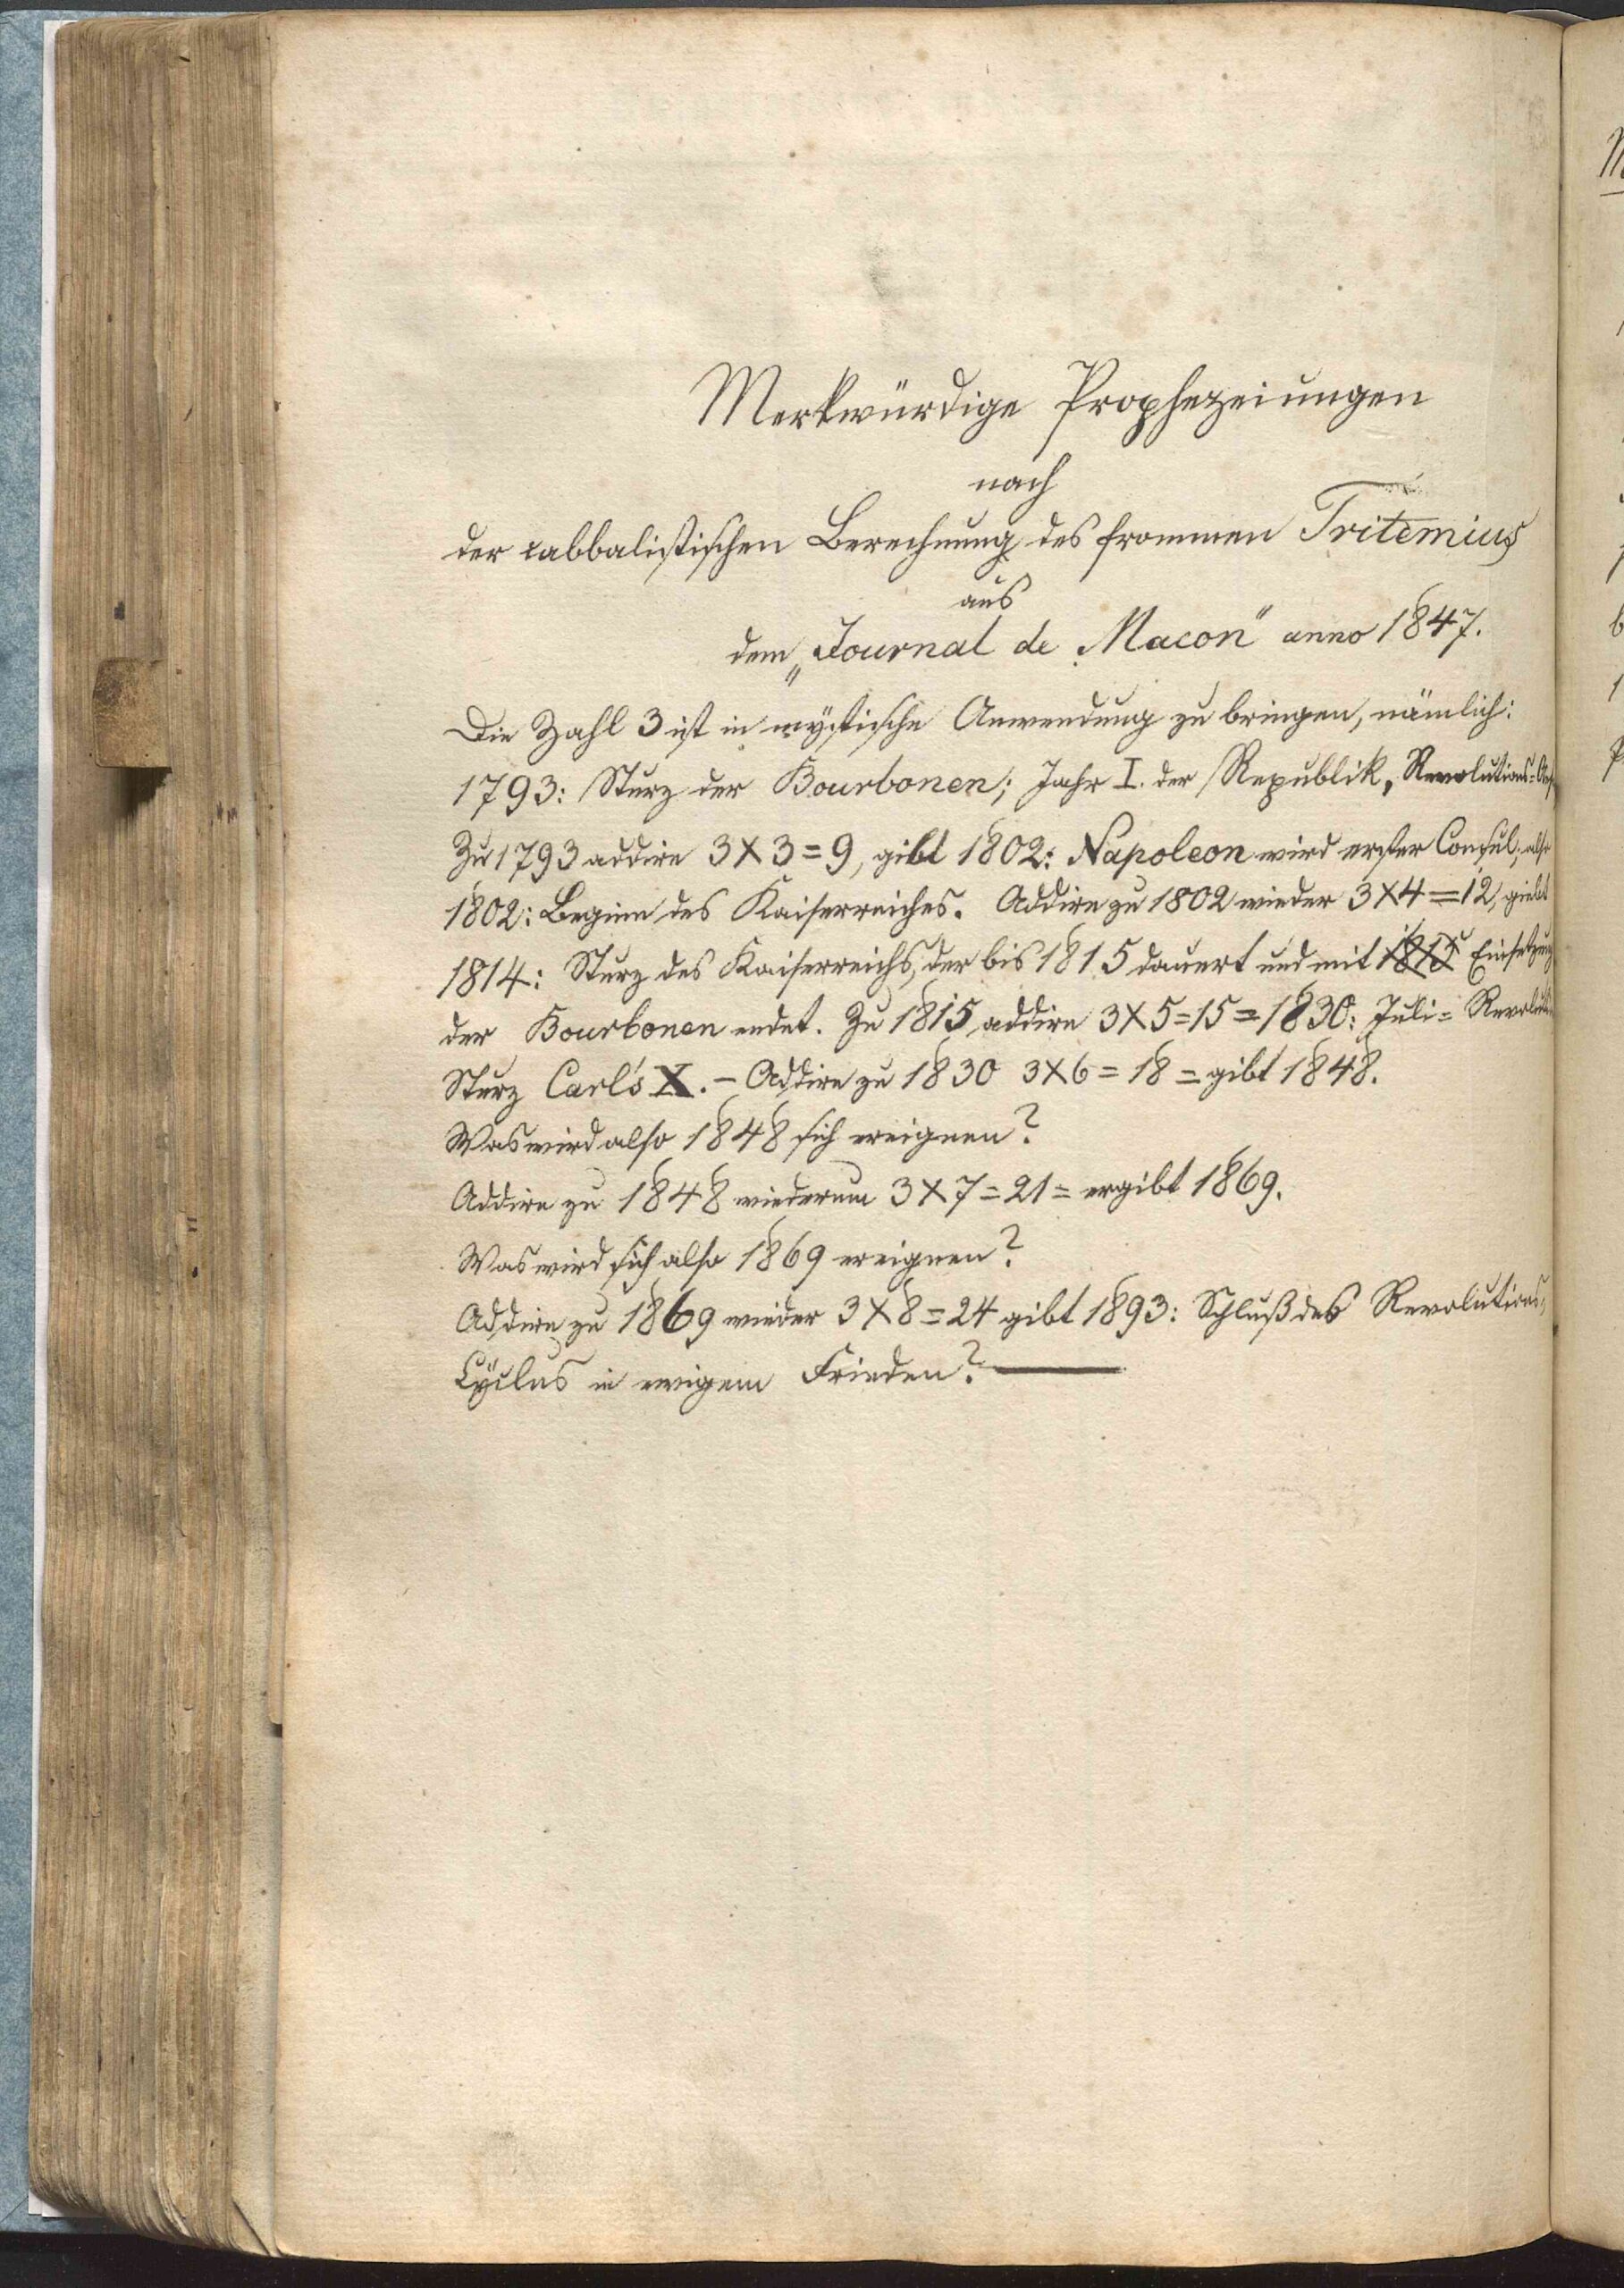 Merkwürdige Prophezeiungen
nach
der cabbalistischen Berechnung des frommen Tritemius
aus
dem „Journal de Macon" anno 1847.
Die Zahl 3 ist in mystische Anwendung zu bringen, nämlich:
1793: Sturz der Bourbonen; Jahr I. der Republik, Revolutions=
Zu 1793 addire 3X3=9, gibt 1802: Napoleon wird erster Consul, also
1802: Beginn des Kaiserreiches. Addire zu 1802 wieder 3X4=12, giebt
1814: Sturz des Kaiserreichs, der bis 1815 dauert und mit 1815 Einsetzung
der Bourbonen endet. Zu 1815 addire 3X5=15=1830: Juli=Revolution
Sturz Carl's X. – Addire zu 1830 3X6=18=gibt 1848.
Was wird also 1848 sich ereignen?
Addire zu 1848 wiederum 3X7=21=ergibt 1869.
Was wird sich also 1869 ereignen?
Addire zu 1869 wieder 3X8=24 gibt 1893: Schluß des Revolutions,
Cyclus in ewigem Frieden?—